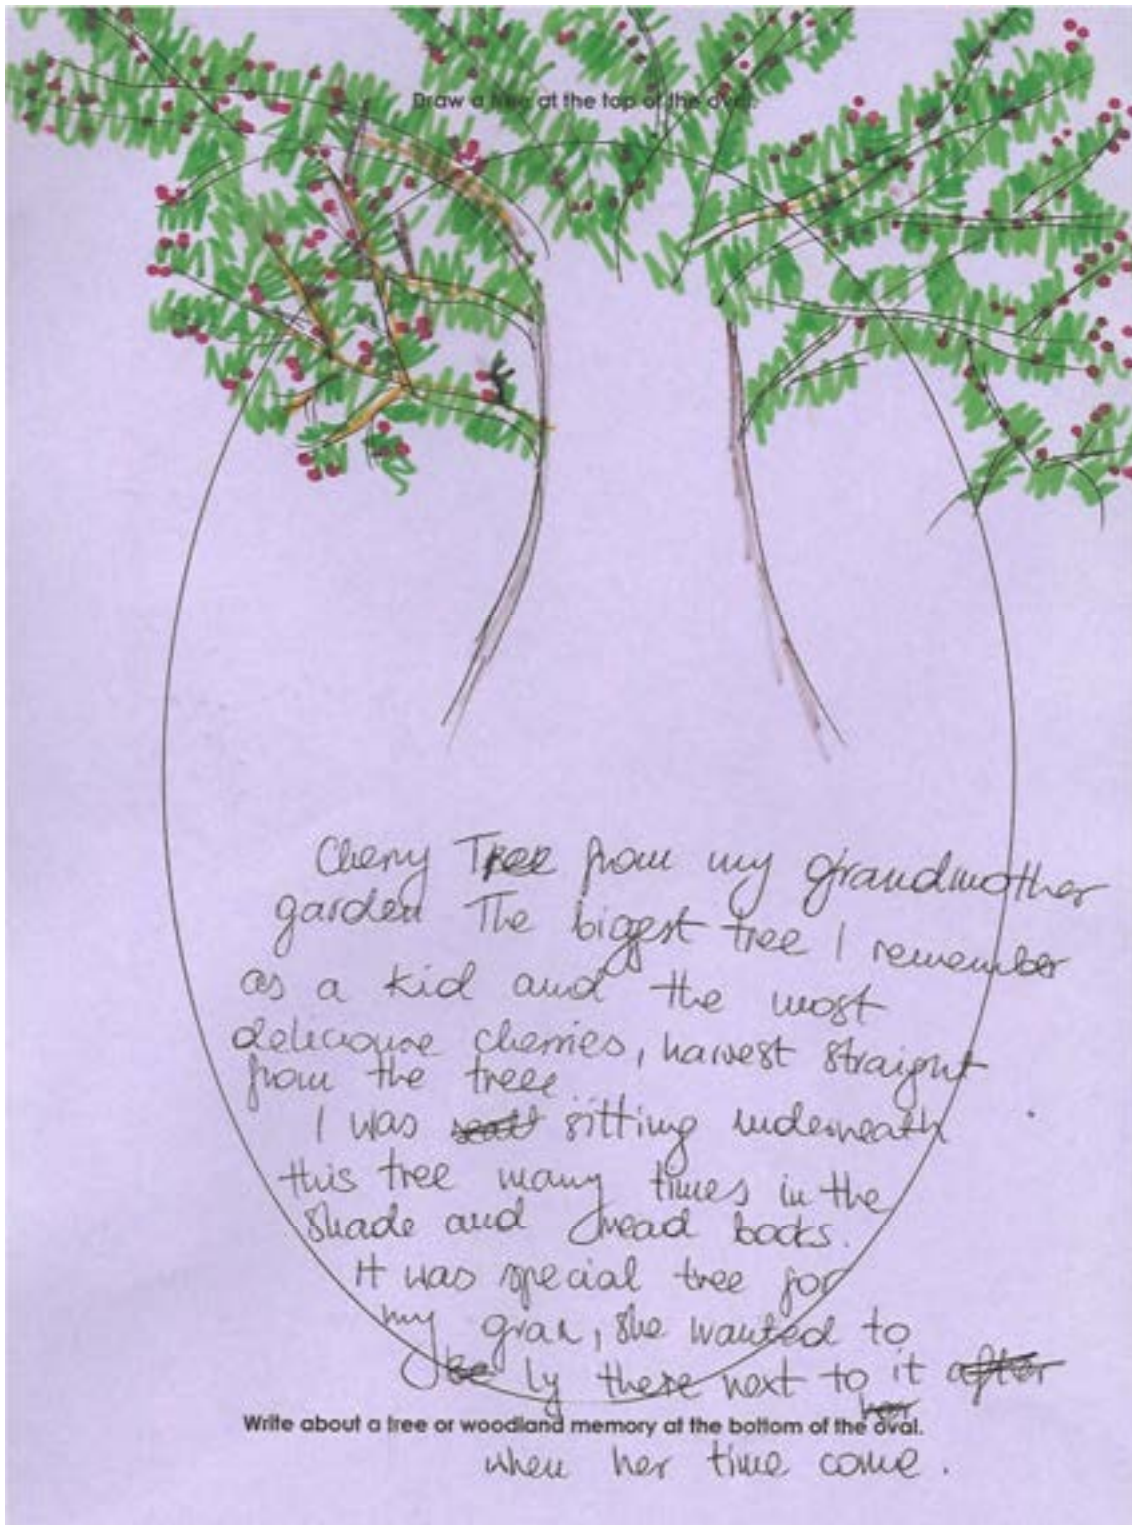 Draw a tree at the top of the oval.
Cherry Tree from my grandmother
garden The biggest tree I remember
as a kid and the most
deleciouse cherries, harvest straight
from the treee
I was sitting underneath
this tree many times in the
shade and read books.
It was special tree for
my gran, she wanted to
ly there next to it after
her
Write about a tree or woodland memory at the bottom of the oval.
when her time come.